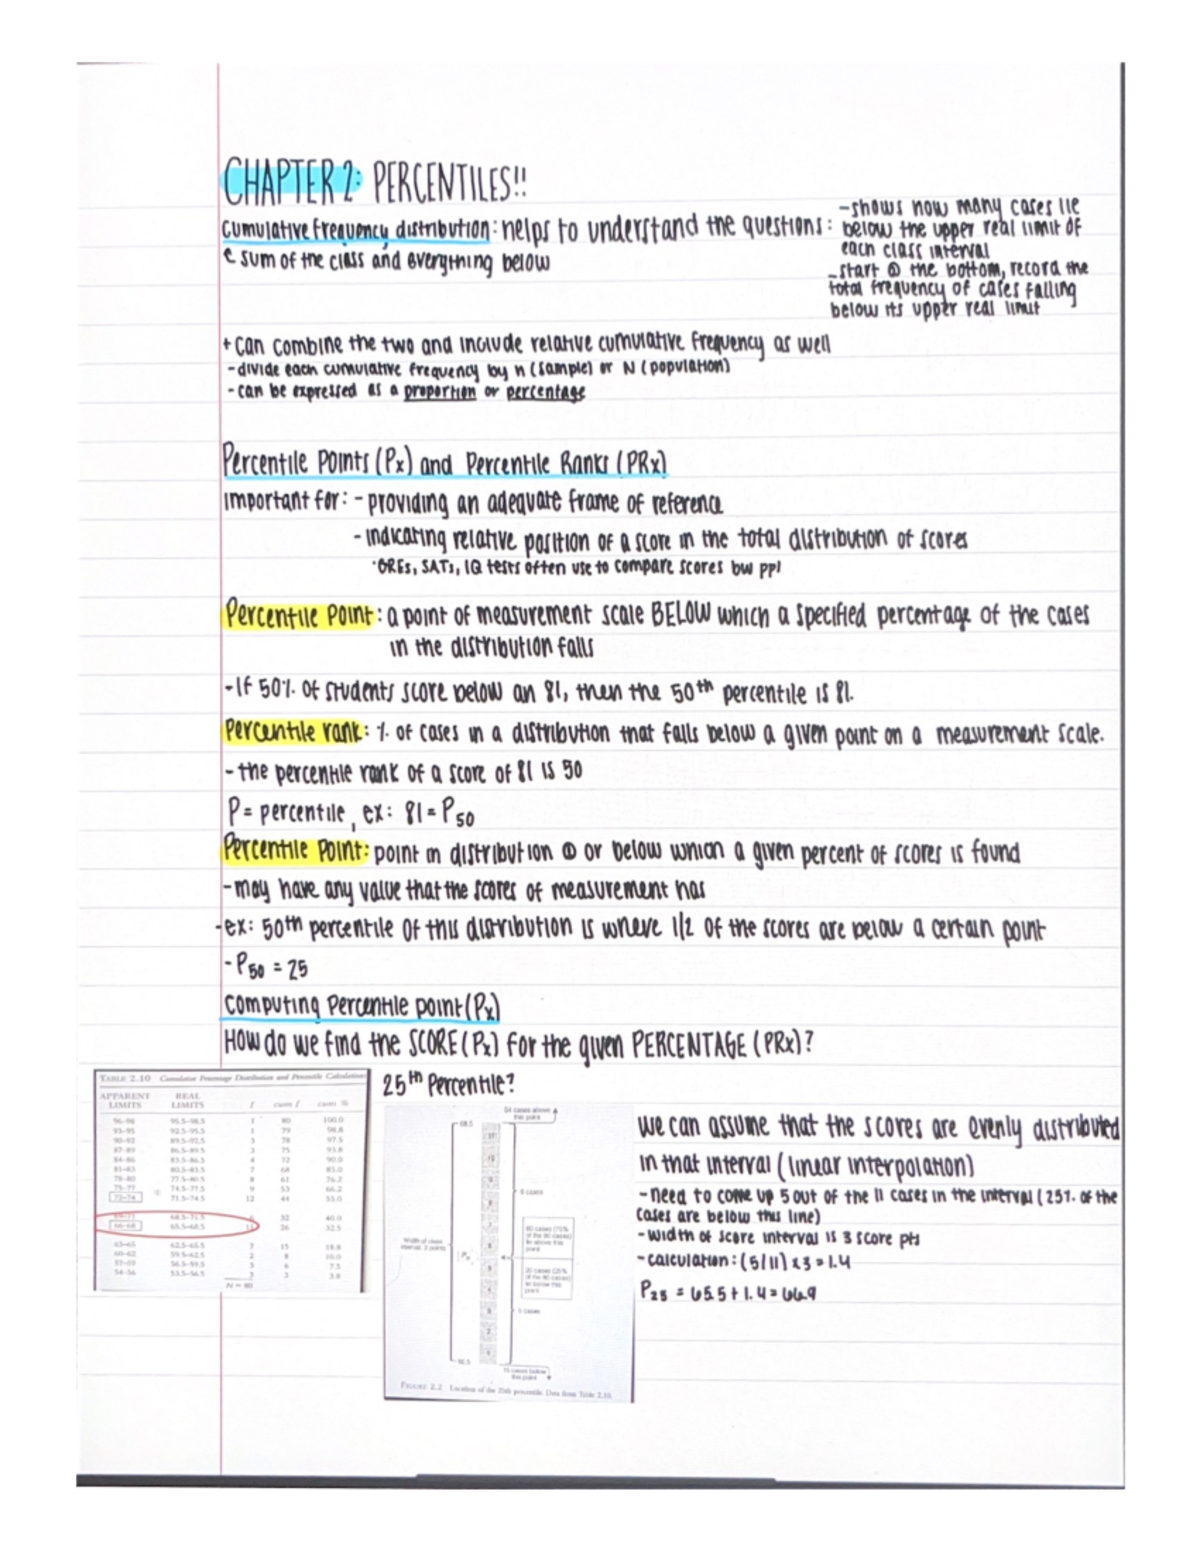 CHAPTER 2: PERCENTILES!!
cumulative frequency distribution: helps to understand the questions:
sum of the class and everything below
-shows how many cases lie
below the upper real limit of
each class interval
-start @ the bottom, record the
total frequency of cases falling
below its upper real limit
+ can combine the two and include relative cumulative frequency as well
-divide each cumulative frequency by n (sample) or N (population)
-can be expressed as a proportion or percentage
Percentile Points (Px) and Percentile Ranks (PRx)
important for: - providing an adequate frame of reference
- indicating relative position of a score in the total distribution of scores
·GREs, SATs, IQ tests often use to compare scores bw ppl
Percentile Point: a point of measurement scale BELOW which a specified percentage of the cases
in the distribution falls
-If 50% of students score below an 81, then the 50th percentile is 81.
Percentile rank: % of cases in a distribution that falls below a given point on a measurement scale.
- the percentile rank of a score of 81 is 50
P = percentile, ex: 81 = P50
Percentile Point: point on distribution @ or below which a given percent of scores is found
-may have any value that the scores of measurement has
-ex: 50th percentile of this distribution is where 1/2 of the scores are below a certain point
- P50 = 25
Computing Percentile point (Px)
How do we find the SCORE (Px) for the given PERCENTAGE (PRx)?
25th Percentile?
TABLE 2.10 Cumulative Percentage Distribution and Percentile Calculation
APPARENT LIMITS REAL LIMITS f cum f cum %
96-98 95.5-98.5 1 80 100.0
93-95 92.5-95.5 1 79 98.8
90-92 89.5-92.5 3 78 97.5
87-89 86.5-89.5 3 75 93.8
84-86 83.5-86.5 4 72 90.0
81-83 80.5-83.5 7 68 85.0
78-80 77.5-80.5 8 61 76.2
75-77 74.5-77.5 9 53 66.2
72-74 71.5-74.5 12 44 55.0
69-71 68.5-71.5 6 32 40.0
66-68 65.5-68.5 11 26 32.5
63-65 62.5-65.5 7 15 18.8
60-62 59.5-62.5 2 8 10.0
57-59 56.5-59.5 3 6 7.5
54-56 53.5-56.5 3 3 3.8
N = 80
54 cases above
this point
6 cases
60 cases (75%
of the 80 cases)
lie above this
point
Width of class
interval, 3 points
20 cases (25%
of the 80 cases)
lie below this
point
5 cases
15 cases below
this point
FIGURE 2.2 Location of the 25th percentile. Data from Table 2.10.
we can assume that the scores are evenly distributed
in that interval (linear interpolation)
-need to come up 5 out of the 11 cases in the interval (25% of the
cases are below this line)
-width of score interval is 3 score pts
-calculation: (5/11) x 3 = 1.4
P25 = 65.5 + 1.4 = 66.9